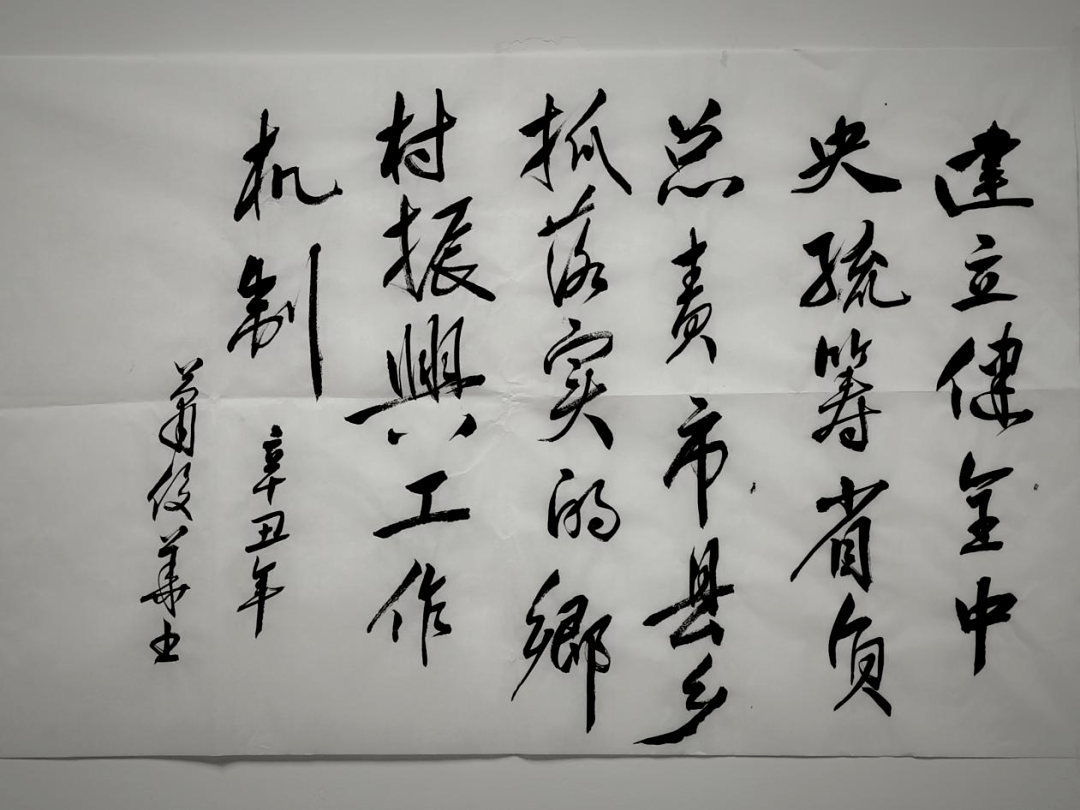 建立健全中
央统筹省负
总责市县乡
抓落实的鄉
村振興工作
机制
辛丑年
蕭俊華书